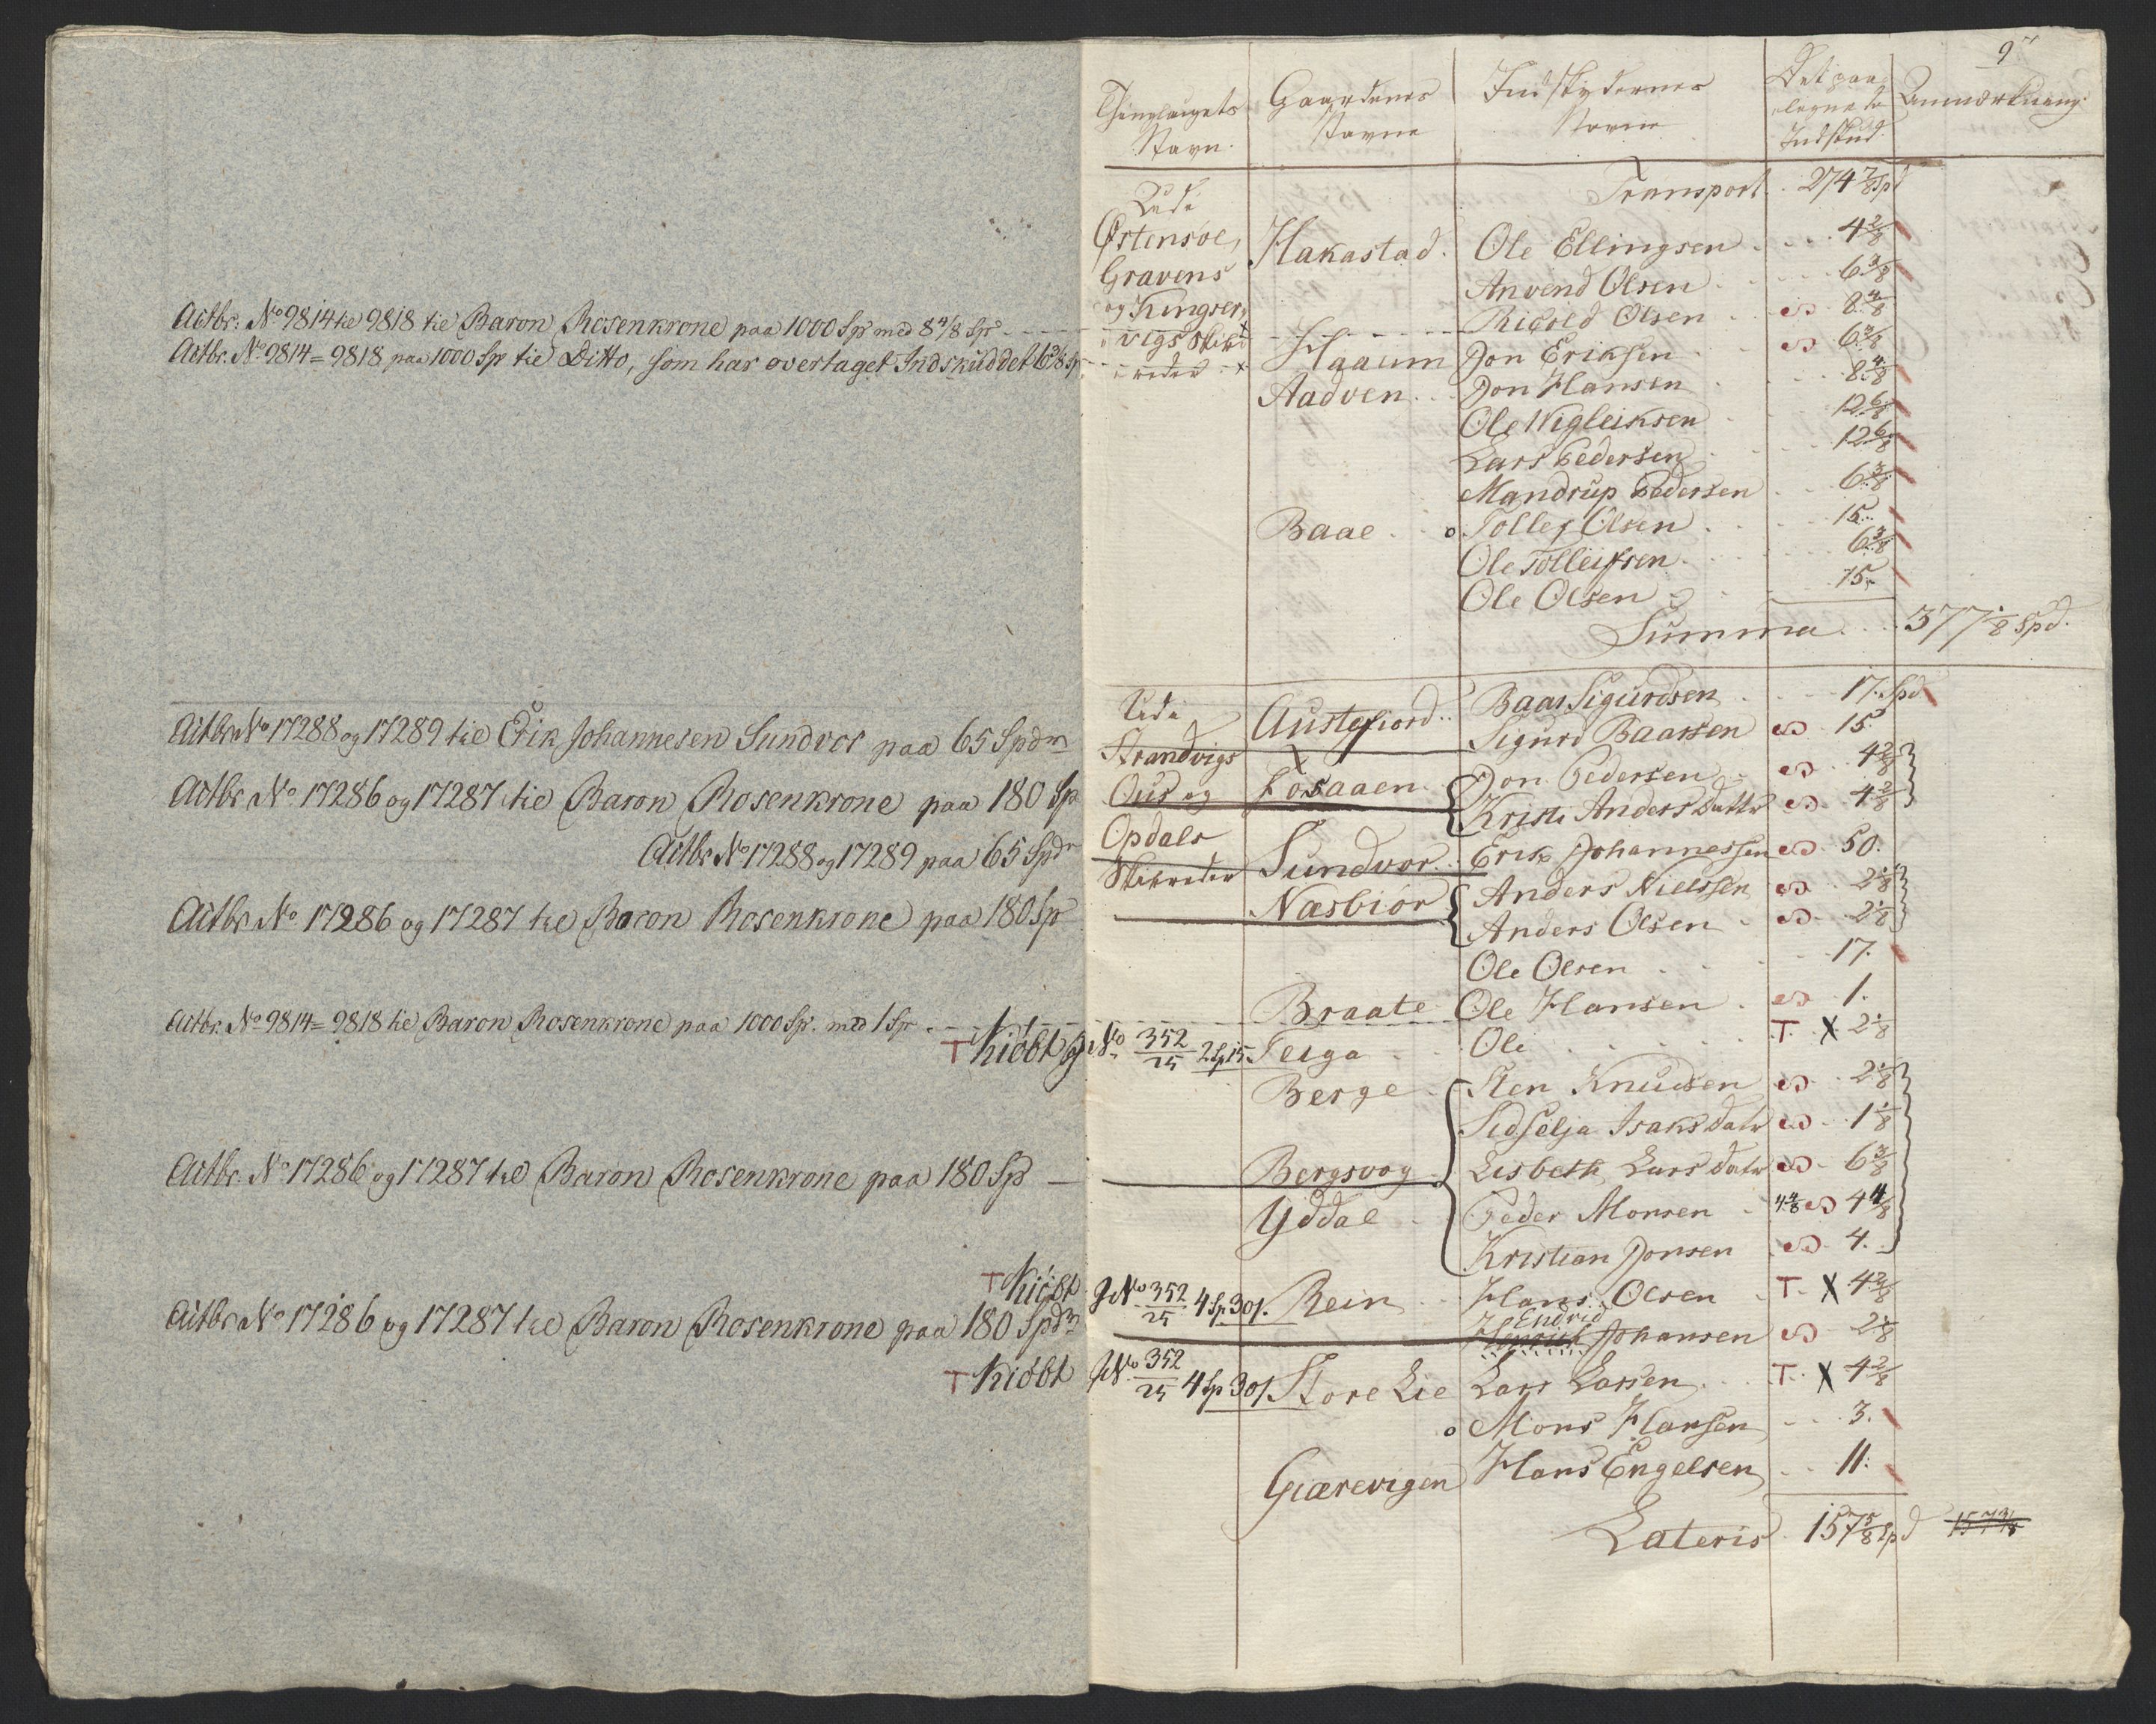 Actbr: No 9814 til 9818 til Baron Rosenkrone paa 1000 Sp med 8 4/8 Sp
Actbr. No. 9814=9818 paa 1000 Sp til Ditto, som har overtaget Indskuddet 6 3/8 Sp
Actbr No 17288 og 17289 til Erik Johannesen Sundvor paa 65 Spdr
Actbr No 17286 og 17287 til Baron Rosenkrone paa 180 Sp
Actbr No 17288 og 17289 paa 65 Spdr
Actbr No 17286 og 17287 til Baron Rosenkrone paa 180 Sp
Actbr. No 9814=9818 til Baron Rosenkrone paa 1000 Sp. med 1 Sp.
T Kiöbt
Actbr. No 17286 og 17287 til Baron Rosenkrone paa 180 Sp
T Kiöbt
Actbr No 17286 og 17287 til Baron Rosenkrone paa 180 Spdr
T Kiöbt
9
Thinglaugets Navn. Gaardenes Navne Indskydernes Navne Det paalegnede Indskud Anmærkning
Transport 274 7/8 Spd
Østensøe, Hakastad. Ole Ellingsen 4 2/8
Gravens Anvend Olsen 6 3/8
og Kingser- Olsen 8 4/8
vigs Skib- Haaum Jon Eriksen 6 3/8
reder Aadven Jon Hansen 8 4/8
Ole Wigleiksen 12 6/8
Lars Pedersen 12 6/8
Mandrup Pedersen 6 3/8
Baae Tollef Olsen 15.
Ole Tolleifsen 6 3/8
Ole Olsen 15.
Summa 377 1/8 Spd.
Austefiord Baar Sigurdsen 17. Spd
Strandvigs Sigurd Baarsen 15
Ous og Fosaaen Jon Pedersen 4 2/8
Kristi Andersdattr 4 2/8
Opdals Sundvor Erik Johannessen 50.
Skibreder Næsbiör Anders Nielssen 2 1/8
Anders Olsen 2 1/8
Ole Olsen 17.
Braate Ole Hansen 1.
No 352/25 2 Sp 15 Teiga Ole T. X 2 1/8
Berge Sten Knudsen 2 1/8
Sidselja Isaksdatr 1 1/8
Bergsvog Lisbeth Larsdatr 6 3/8
Yddal Peder Monsen 4 4/8 4 4/8
Kristian Jonsen 4.
No 352/25 4 Sp 30 Rein Hans Olsen T. X 4 2/8
Endrid
Johansen 2 1/8
No 352/25 4 Sp 30 Store Lie Lars Larsen T. X 4 2/8
Mons Hansen 3.
Giærevigen Hans Engelsen 11.
Lateris 157 5/8 Spd 157 3/8